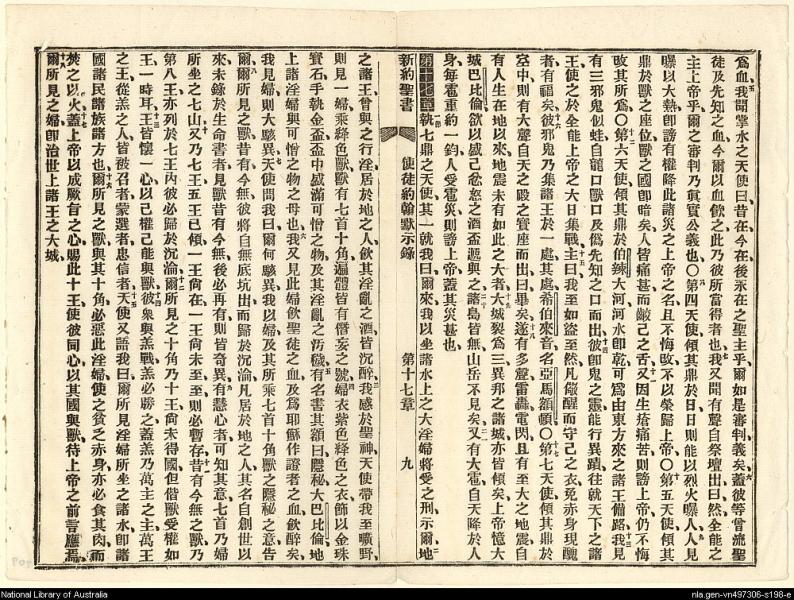 爲血我聞掌水之天使曰昔在今在後永在之聖主乎爾如是審判義矣蓋彼等曾流聖
徒及先知之血今爾以血飲之此乃彼所當得者也我又聞有聲自祭壇出曰然全能之
主上帝乎爾之審判乃眞實公義也〇第四天使傾其鼎於日日則能以烈火曝人人見
曝以大熱卽謗有權降此諸災之上帝之名且不悔改不以榮歸上帝〇第五天使傾其
鼎於獸之座位獸之國卽暗矣人皆痛甚而齩己之舌又因生瘡痛苦則謗上帝仍不悔
改其所爲〇第六天使傾其鼎於伯辣大河河水卽乾可爲由東方來之諸王備路我見
有三邪鬼似蛙自龍口獸口及僞先知之口而出彼卽鬼之靈能行異蹟往就天下之諸
王使之於全能上帝之大日集戰主曰我至如盜至然凡儆醒而守己之衣免赤身現醜
者有福矣彼邪鬼乃集諸王於一處其處希伯來音名亞馬額頓〇第七天使傾其鼎於
空中則有大聲自天之殿之寶座而出曰畢矣遂有多聲雷轟電閃且有至大之地震自
有人生在地以來地震未有如此之大者大城裂爲三異邦之諸城亦皆傾矣上帝憶大
城巴比倫欲以盛己忿怒之酒盃遞與之諸島皆無山岳不見矣又有大雹自天降於人
身每雹重約一鈞人受雹災則謗上帝蓋其災甚也
第十七章執七鼎之天使其一就我曰爾來我以坐諸水上之大淫婦將受之刑示爾地
新約聖書 使徒約翰默示錄 第十七章 九
之諸王曾與之行淫居於地之人飲其淫亂之酒皆沉醉我感於聖神天使帶我至曠野
則見一婦乘絳色獸獸有七首十角遍體皆有僭妄之號婦衣紫色絳色之衣飾以金珠
寶石手執金盃盃中盛滿可憎之物及其淫亂之汚穢有名書其額曰隱秘大巴比倫地
上諸淫婦與可憎之物之母也我又見此婦飲聖徒之血及爲耶穌作證者之血飲醉矣
我見婦則大駭異天使問我曰爾何駭異我以婦及其所乘七首十角獸之隱秘之意告
爾爾所見之獸昔有今無彼將自無底坑出而歸於沉淪凡居於地之人其名自創世以
來未錄於生命書者見獸昔有今無後必再有則皆奇異有慧心者可知其意七首乃婦
所坐之七山又乃七王五王已傾一王尙在一王尙未至至則必暫存昔有今無之獸乃
第八王亦列於七王內彼必歸於沉淪爾所見之十角乃十王尙未得國但偕獸受權如
王一時耳王皆懷一心以己權己能與獸彼衆與羔戰羔必勝之蓋羔乃萬主之主萬王
之王從羔之人皆被召者蒙選者忠信者天使又語我曰爾所見淫婦所坐之諸水卽諸
國諸民諸族諸方也爾所見之獸與其十角必惡此淫婦使之貧乏赤身亦必食其肉而
焚之以火蓋上帝以成厥旨之心賜此十王使彼同心以其國與獸待上帝之前言應焉
爾所見之婦卽治世上諸王之大城
National Library of Australia
nla.gen-vn497306-s198-e